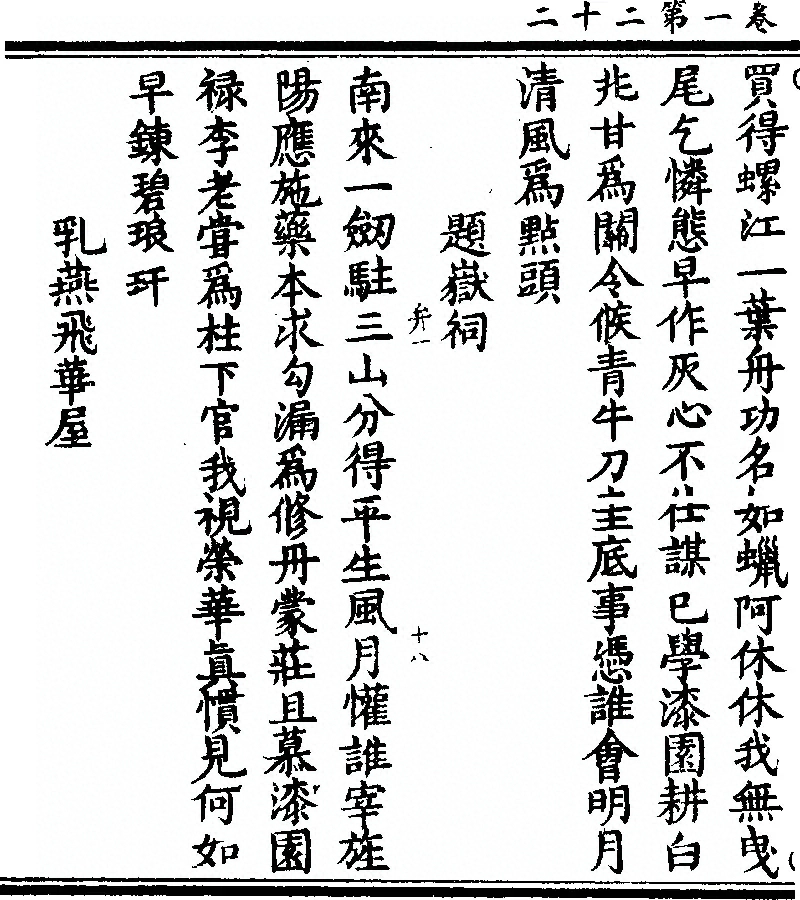 卷一第二十二
買得螺江一葉舟功名如蠟阿休休我無曳
尾乞憐態早作灰心不仕謀已學漆園耕白
兆甘爲關令候青牛刀圭底事憑誰會明月
清風爲點頭
題嶽祠
南來一劒駐三山分得平生風月懽誰宰旌
陽應施藥本求勾漏爲修丹蒙莊且慕漆園
禄李老甞爲柱下官我視榮華眞慣見何如
早鍊碧琅玕
乳燕飛華屋
弁一
十八